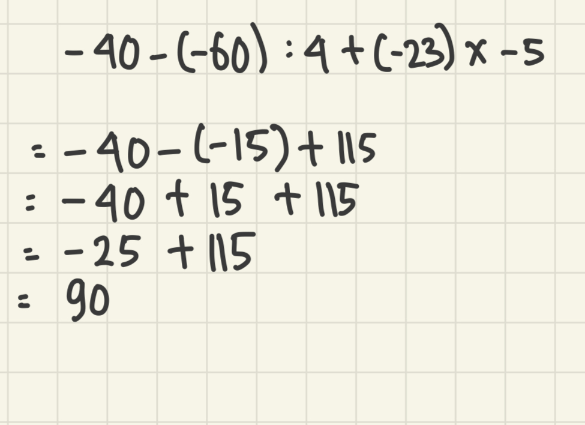 -40-(-60) : 4 + (-23) x -5
= -40-(-15) + 115
= -40 + 15 + 115
= -25 + 115
= 90